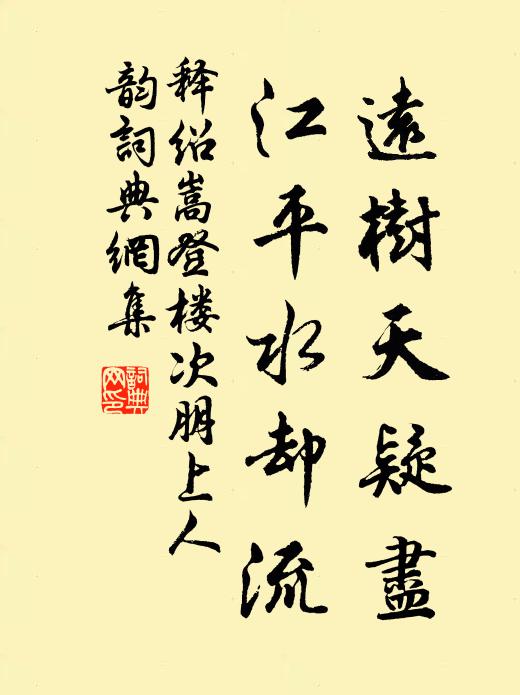 遠樹天疑盡
江平水却流
释绍嵩登楼次朋上人
韵詞典網集
詞典
网印